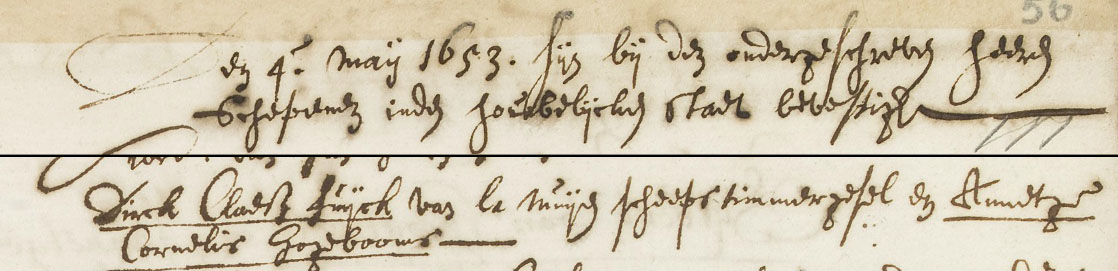 56
Den 4e. Maij 1653. sijn bij den ondergeschreven heeren
Schepenen inden houwelijcken staet bevesticht
Dirck Claesz Fuijck van la Muijden scheepstimmergesel en Annetge
Cornelis Hogebooms